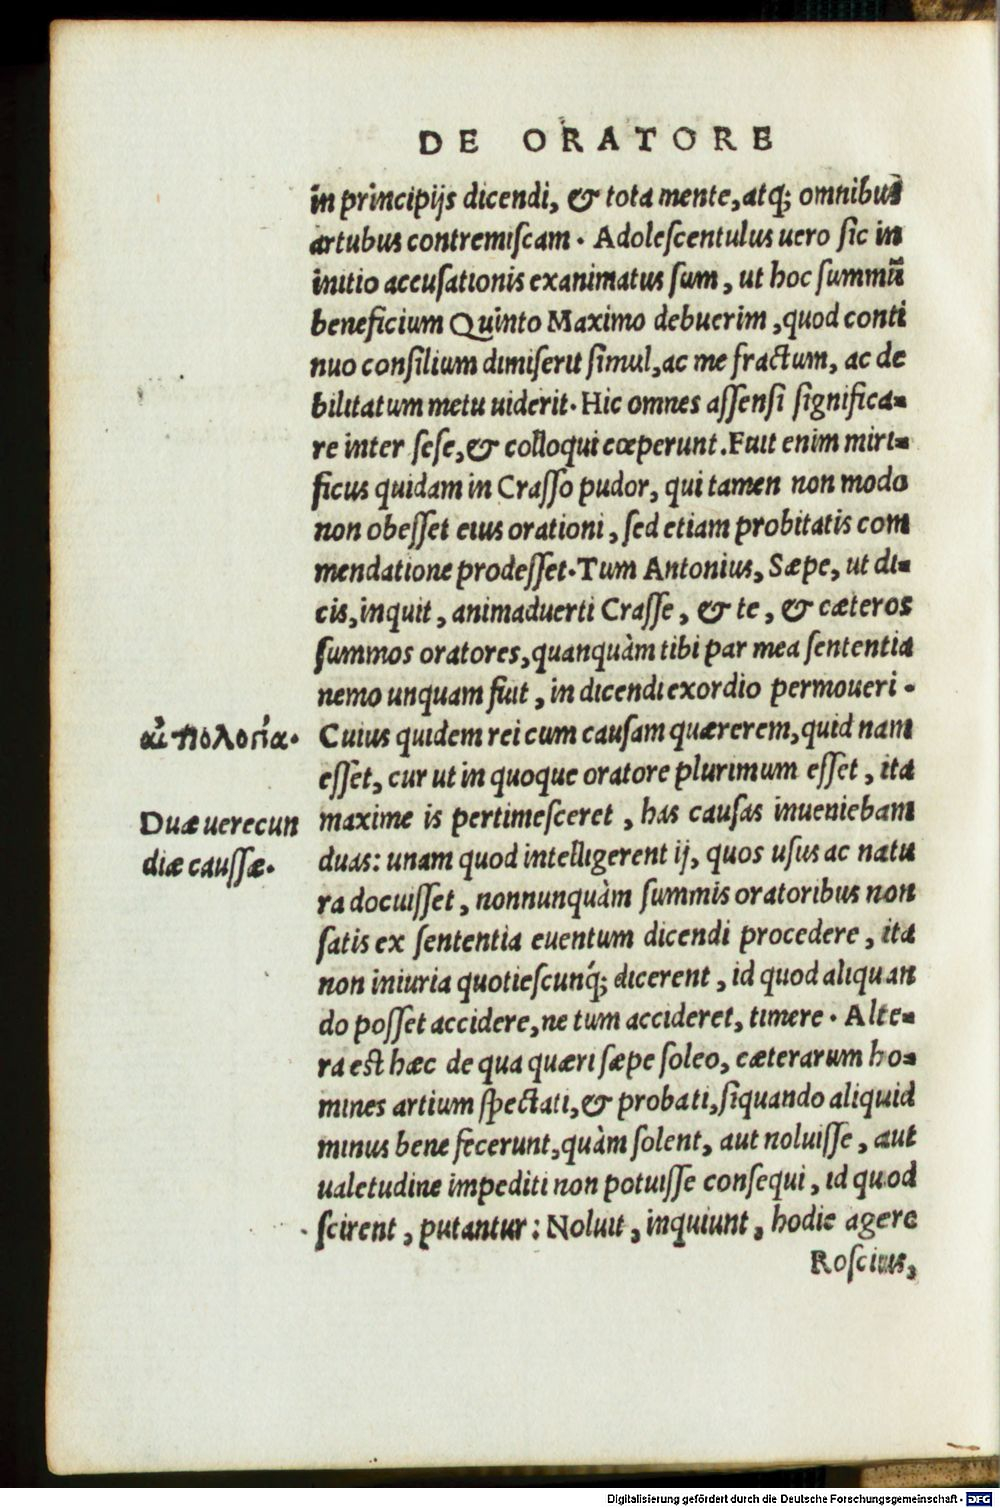 DE ORATORE
in principijs dicendi, & tota mente, atq; omnibus
artubus contremiscam. Adolescentulus uero sic in
initio accusationis exanimatus sum, ut hoc summũ
beneficium Quinto Maximo debuerim, quod conti
nuo consilium dimiserit simul, ac me fractum, ac de
bilitatum metu uiderit. Hic omnes assensi significa-
re inter sese, & colloqui cœperunt. Fuit enim miri-
ficus quidam in Crasso pudor, qui tamen non modo
non obesset eius orationi, sed etiam probitatis com
mendatione prodesset. Tum Antonius, Sæpe, ut di-
cis, inquit, animaduerti Crasse, & te, & cæteros
summos oratores, quanquàm tibi par mea sententia
nemo unquam fuit, in dicendi exordio permoueri.
Cuius quidem rei cum causam quærerem, quid nam
esset, cur ut in quoque oratore plurimum esset, ita
maxime is pertimesceret, has causas inueniebam
duas: unam quod intelligerent ij, quos usus ac natu
ra docuisset, nonnunquàm summis oratoribus non
satis ex sententia euentum dicendi procedere, ita
non iniuria quotiescunq́; dicerent, id quod aliquan
do posset accidere, ne tum accideret, timere. Alte-
ra est hæc de qua quæri sæpe soleo, cæterarum ho-
mines artium spectati, & probati, siquando aliquid
minus bene fecerunt, quàm solent, aut noluisse, aut
ualetudine impediti non potuisse consequi, id quod
scirent, putantur: Noluit, inquiunt, hodie agere
Roscius,
Duæ uerecun
diæ caussæ.
Digitalisierung gefördert durch die Deutsche Forschungsgemeinschaft - DFG